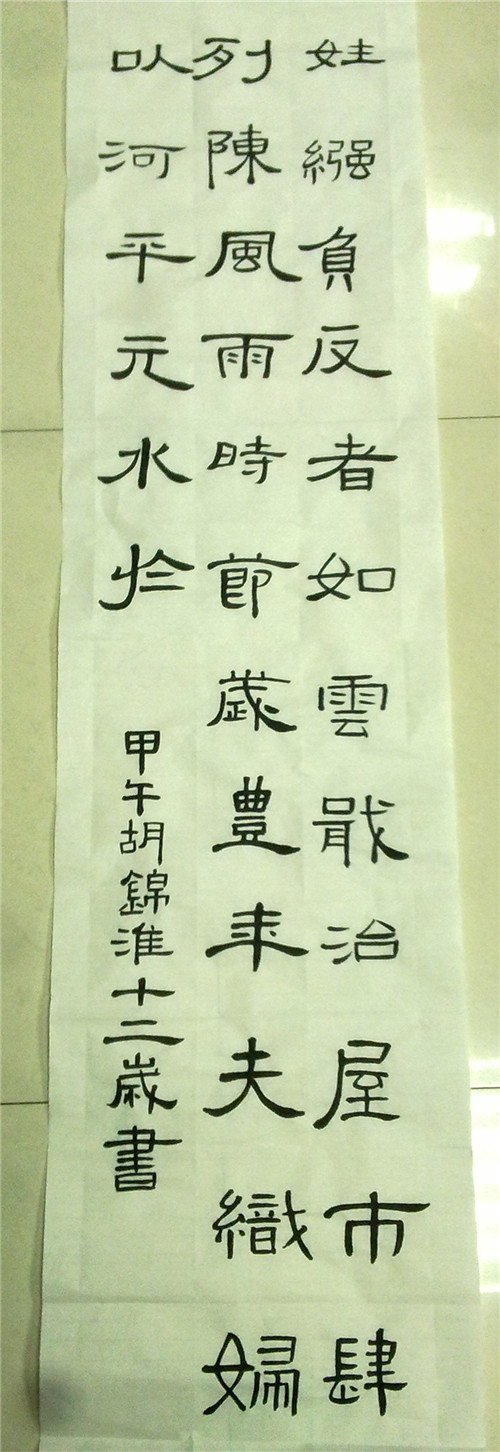 姓繈負反者如雲戢治屋市肆
列陳風雨時節歲豊年夫織婦
以河平元水於
甲午胡錦淮十二歲書